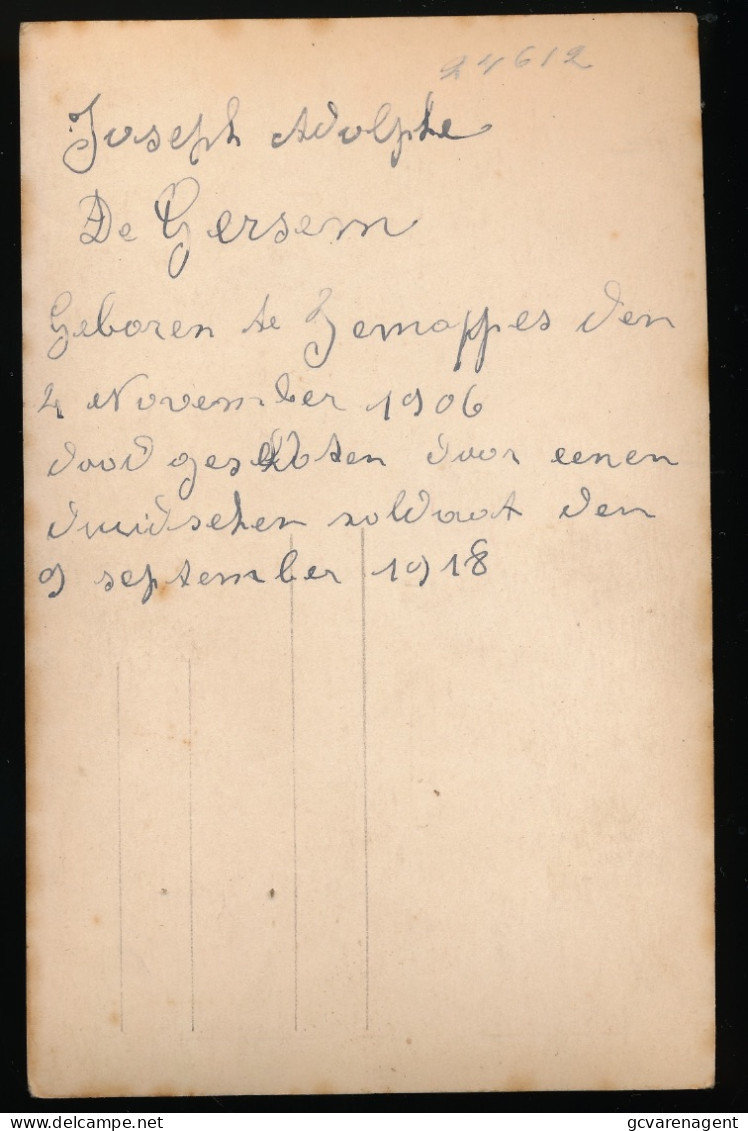 24612
Joseph Adolphe
De Gersem
Geboren te Jemappes den
2 November 1906
dood geschoten door eenen
duidschen soldaat den
9 september 1918
delcampe.net
gcvarenagent